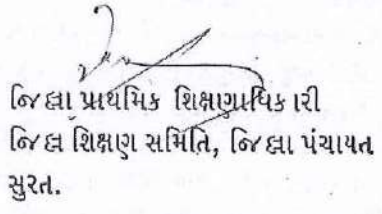 જિલ્લા પ્રાથમિક શિક્ષણાધિકારી
જિલ્લ શિક્ષણ સમિતિ, જિલ્લા પંચાયત
સુરત.